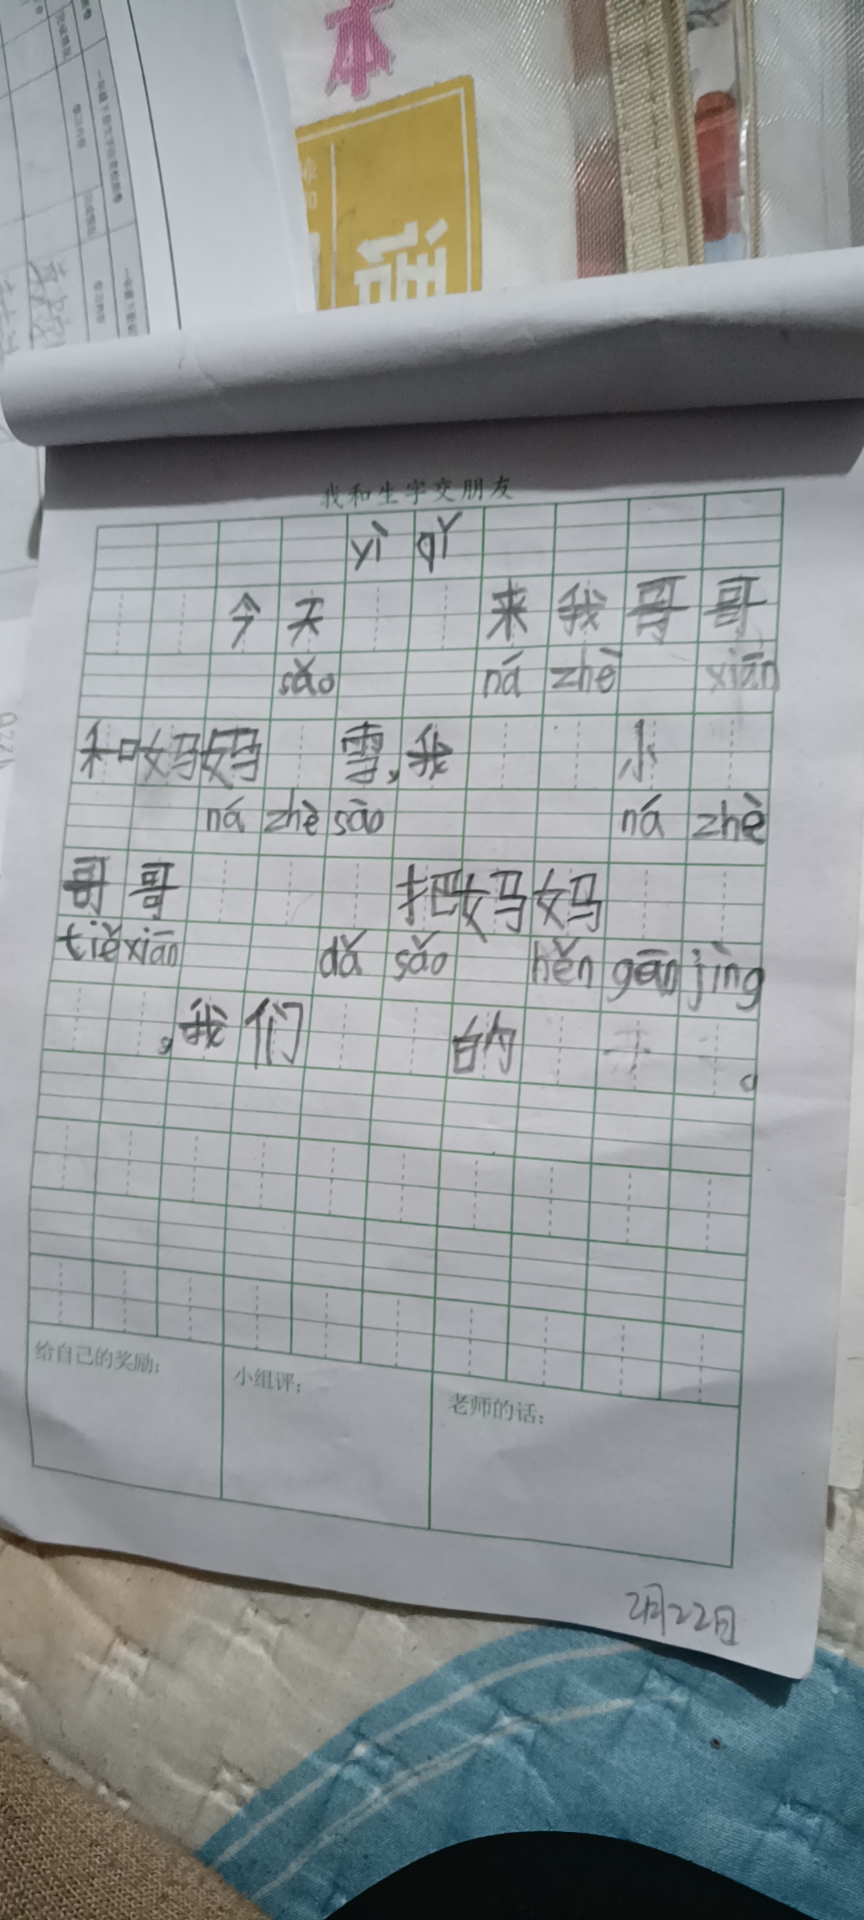 本
语
我和生字交朋友
yì qǐ
今天 来我哥哥
sǎo ná zhè xiān
和妈妈 雪,我 小
ná zhè sào ná zhè
哥哥 把妈妈
tiě xiān dǎ sǎo hěn gān jìng
,我们 的 。
给自己的奖励:
小组评:
老师的话:
2月22日